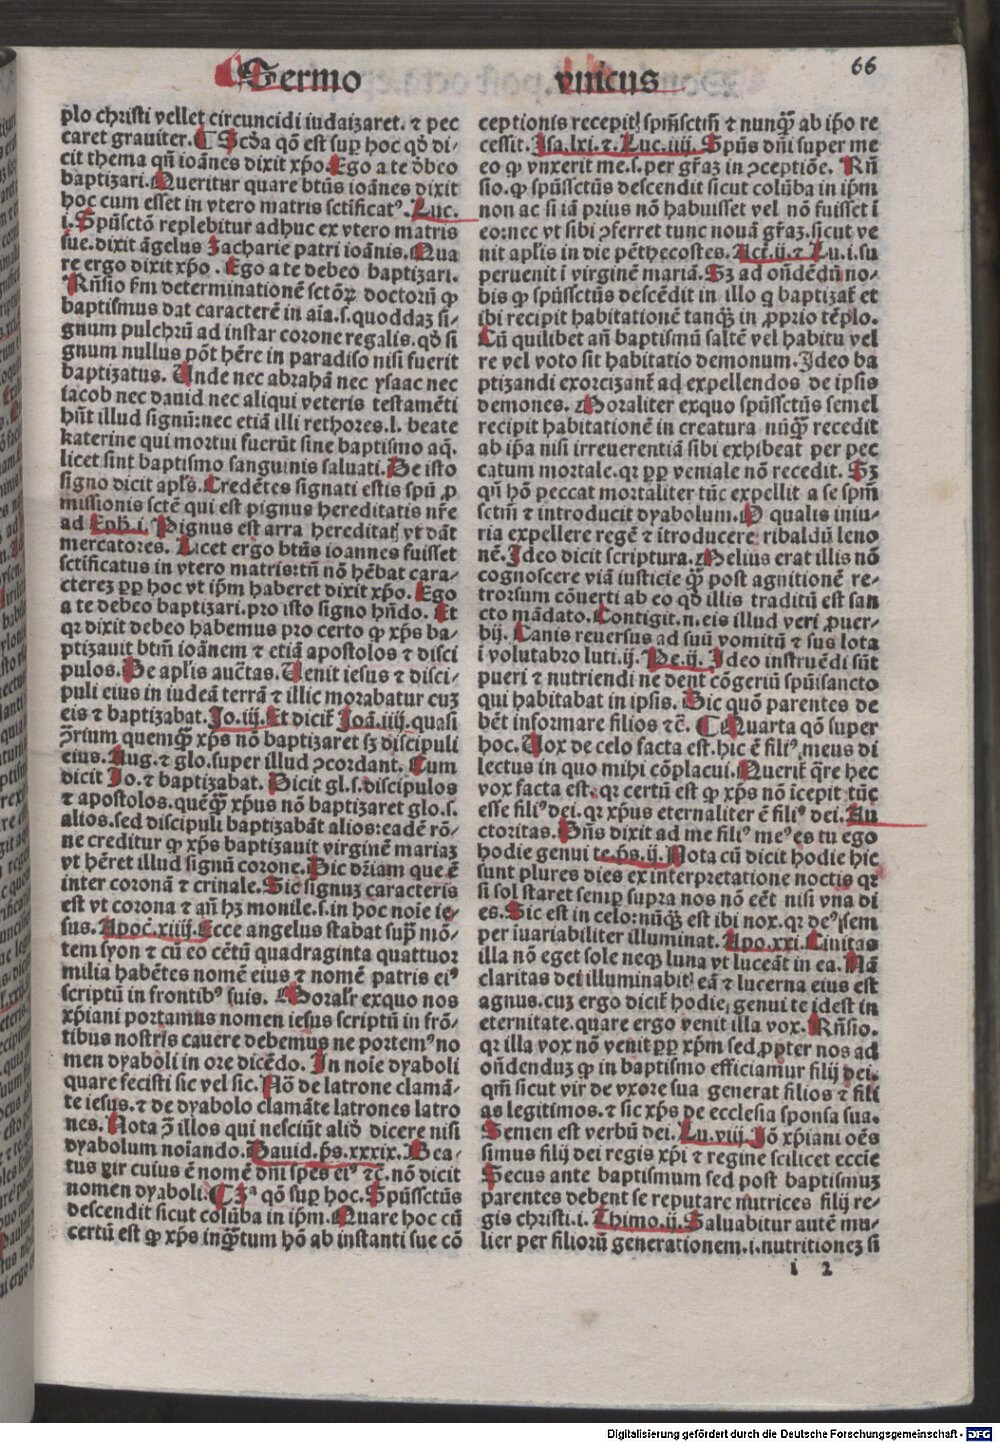 Sermo vnicus 66
plo christi vellet circuncidi iudaizaret. ⁊ pec
caret grauiter. ¶ Scd̄a qō est sup hoc qd̓ di-
cit thema qn̄ ioānes dixit xp̄o. Ego a te d̓beo
baptizari. Queritur quare bt̄us ioānes dixit
hoc cum esset in vtero matris sctificatꝰ. Luc.
i. Spūsctō replebitur adhuc ex vtero matris
sue. dixit āgelus zacharie patri ioānis. Qua
re ergo dixit xp̄o. Ego a te debeo baptizari.
Rn̄sio ẜm determinationē sctōꝝ doctorū ꝙ
baptismus dat caracterē in aīa. s. quoddaz si-
gnum pulchrū ad instar corone regalis. qd̓ si
gnum nullus pōt hēre in paradiso nisi fuerit
baptizatus. Unde nec abrahā nec ysaac nec
iacob nec dauid nec aliqui veteris testamēti
hn̄t illud signū: nec etiā illi rethores. l. beate
katerine qui mortui fuerūt sine baptismo aq̄.
licet sint baptismo sanguinis saluati. De isto
signo dicit apl̓s. Credētes signati estis spū ꝓ
missionis sctē qui est pignus hereditatis nr̄e
ad Eph. i. Pignus est arra hereditatꝭ vt dāt
mercatores. Licet ergo bt̄us ioannes fuisset
sctificatus in vtero matris: tn̄ nō hēbat cara-
cterez ꝓp hoc vt ip̄m haberet dixit xp̄o. Ego
a te debeo baptizari. pro isto signo hn̄do. Et
qꝛ dixit debeo habemus pro certo ꝙ xp̄s ba-
ptizauit btm̄ ioānem ⁊ etiā apostolos ⁊ disci
pulos. De apl̓is auc̄tas. Uenit iesus ⁊ disci-
puli eius in iudeā terrā ⁊ illic morabatur cuz
eis ⁊ baptizabat. Jo. iij. Et dicit̄ Joā. iiij. quasi
ↄ̄rium quemq̄ꝫ xp̄s nō baptizaret sꝫ discipuli
eius. Aug. ⁊ glo. super illud ↄcordant. Cum
dicit Jo. ⁊ baptizabat. Dicit gl. s. discipulos
⁊ apostolos. quēq̄ꝫ xp̄us nō baptizaret glo. s.
alios. sed discipuli baptizabāt alios: eadē rō-
ne creditur ꝙ xp̄s baptizauit virginē mariaz
vt hēret illud signū corone. Dic dr̄iam que ē
inter coronā ⁊ crinale. Sic signuz caracteris
est vt corona ⁊ aū hꝫ monile. s. in hoc noīe ie-
sus. Apoc. xiiij. Ecce angelus stabat sup mō-
tem syon ⁊ cū eo cētū quadraginta quattuor
milia habētes nomē eius ⁊ nomē patris eiꝰ
scriptū in frontibꝰ suis. Moralr̄ exquo nos
xp̄iani portamus nomen iesus scriptū in frō-
tibus nostris cauere debemus ne portemꝰ no
men dyaboli in ore dicēdo. In noīe dyaboli
quare fecisti sic vel sic. Nō de latrone clamā-
te iesus. ⁊ de dyabolo clamāte latrones latro
nes. Nota ↄ̄ illos qui nesciūt alid̓ dicere nisi
dyabolum noīando. Dauid. ps. xxxix. Bea-
tus vir cuius ē nomē dn̄i spes eiꝰ ⁊c̄. nō dicit
nomen dyaboli. ¶ 3ª qō sup hoc. Spūssctūs
descendit sicut colūba in ip̄m. Quare hoc cū
certū est ꝙ xp̄s inq̄ꝫtum hō ab instanti sue cō
ceptionis recepit spm̄sctm̄ ⁊ nunq̄ꝫ ab ip̄o re
cessit. Isa. lxi. ⁊. Luc. iiij. Spūs dn̄i super me
eo ꝙ vnxerit me. s. per gr̄az in ↄceptiōe. Rn̄
sio. ꝙ spūssctūs descendit sicut colūba in ip̄m
non ac si iā prius nō habuisset vel nō fuisset ī
eo: nec vt sibi ↄferret tunc nouā gr̄az. sicut ve
nit apl̓is in die pēthecostes. Act. ij. ⁊ Lu. i. su
peruenit ī virginē mariā. Sꝫ ad on̄dēdū no-
bis ꝙ spūssctūs descēdit in illo q̄ baptizat̄ et
ibi recipit habitationē tanq̄ꝫ in ꝓprio tēplo.
Cū quilibet an̄ baptismū saltē vel habitu vel
re vel voto sit habitatio demonum. Ideo ba
ptizandi exorcizant̄ ad expellendos de ipsis
demones. Moraliter exquo spūssctūs semel
recipit habitationē in creatura nūq̄ꝫ recedit
ab ip̄a nisi irreuerentiā sibi exhibeat per pec
catum mortale. qꝛ ꝓp veniale nō recedit. Sꝫ
qn̄ hō peccat mortaliter tūc expellit a se spm̄
sctm̄ ⁊ introducit dyabolum. O qualis iniu-
ria expellere regē ⁊ ītroducere ribaldū leno
nē. Ideo dicit scriptura. Melius erat illis nō
cognoscere viā iusticie q̄ꝫ post agnitionē re-
trorsum cōuerti ab eo qd̓ illis traditū est san
cto mādato. Contigit. n. eis illud veri ꝓuer-
bij. Canis reuersus ad suū vomitū ⁊ sus lota
ī volutabro luti. ij. Pe. ij. Ideo instruēdi sūt
pueri ⁊ nutriendi ne dent cōgeriū spūisancto
qui habitabat in ipsis. Sic quō parentes de
bēt informare filios ⁊c̄. ¶ Quarta qō super
hoc. Uox de celo facta est. hic ē filiꝰ meus di
lectus in quo mihi cōplacui. Querit̄ q̄re hec
vox facta est. qꝛ certū est ꝙ xp̄s nō īcepit tūc
esse filiꝰ dei. qꝛ xp̄us eternaliter ē filiꝰ dei. Au
ctoritas. Dn̄s dixit ad me filiꝰ meꝰ es tu ego
hodie genui te. ps. ij. Nota cū dicit hodie hic
sunt plures dies ex interpretatione noctis qꝛ
si sol staret semp supra nos nō eēt nisi vna di
es. Sic est in celo: nūq̄ꝫ est ibi nox. qꝛ deꝰ sem
per iuariabiliter illuminat. Apo. xxi. Ciuitas
illa nō eget sole neqꝫ luna vt luceāt in ea. Nā
claritas dei illuminabit eā ⁊ lucerna eius est
agnus. cuz ergo dicit̄ hodie genui te idest in
eternitate. quare ergo venit illa vox. Rn̄sio.
qꝛ illa vox nō venit ꝓp xp̄m sed ꝓpter nos ad
on̄denduz ꝙ in baptismo efficiamur filij dei.
qm̄ sicut vir de vxore sua generat filios ⁊ fili
as legitimos. ⁊ sic xp̄s de ecclesia sponsa sua.
Semen est verbū dei. Lu. viij. Jō xp̄iani oēs
simus filij dei regis xp̄i ⁊ regine scilicet eccīe
Secus ante baptismum sed post baptismuz
parentes debent se reputare nutrices filij re-
gis christi. i. Thimo. ij. Saluabitur autē mu-
lier per filiorū generationem. i. nutritionez si
i 2
Digitalisierung gefördert durch die Deutsche Forschungsgemeinschaft - DFG